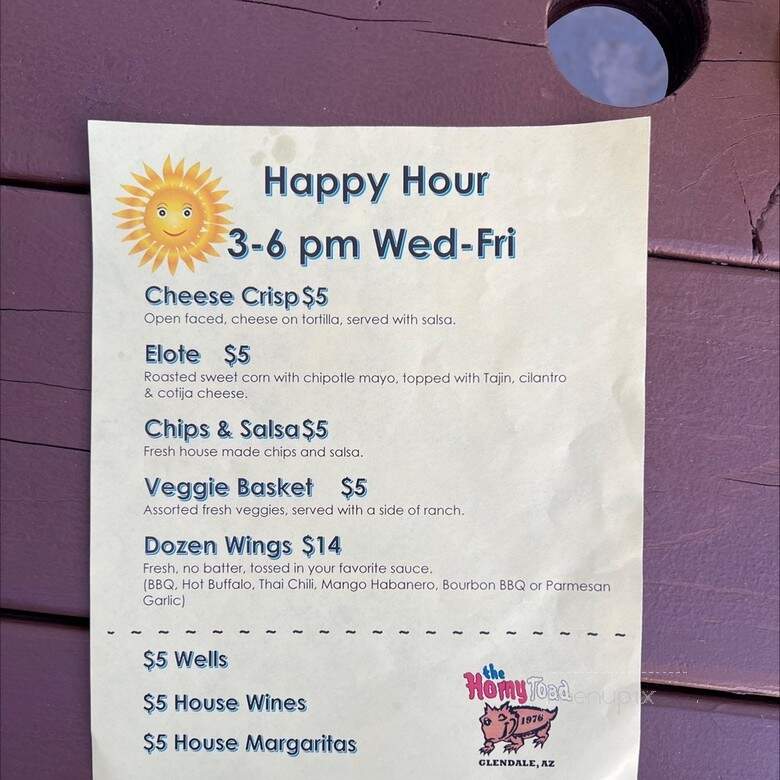 Happy Hour
3-6 pm Wed-Fri
Cheese Crisp $5
Open faced, cheese on tortilla, served with salsa.
Elote $5
Roasted sweet corn with chipotle mayo, topped with Tajin, cilantro
& cotija cheese.
Chips & Salsa $5
Fresh house made chips and salsa.
Veggie Basket $5
Assorted fresh veggies, served with a side of ranch.
Dozen Wings $14
Fresh, no batter, tossed in your favorite sauce.
(BBQ, Hot Buffalo, Thai Chili, Mango Habanero, Bourbon BBQ or Parmesan
Garlic)
~ ~ ~ ~ ~ ~ ~ ~ ~ ~ ~ ~ ~ ~ ~ ~ ~ ~ ~ ~
$5 Wells
$5 House Wines
$5 House Margaritas
the
Horny Toad
1976
GLENDALE, AZ